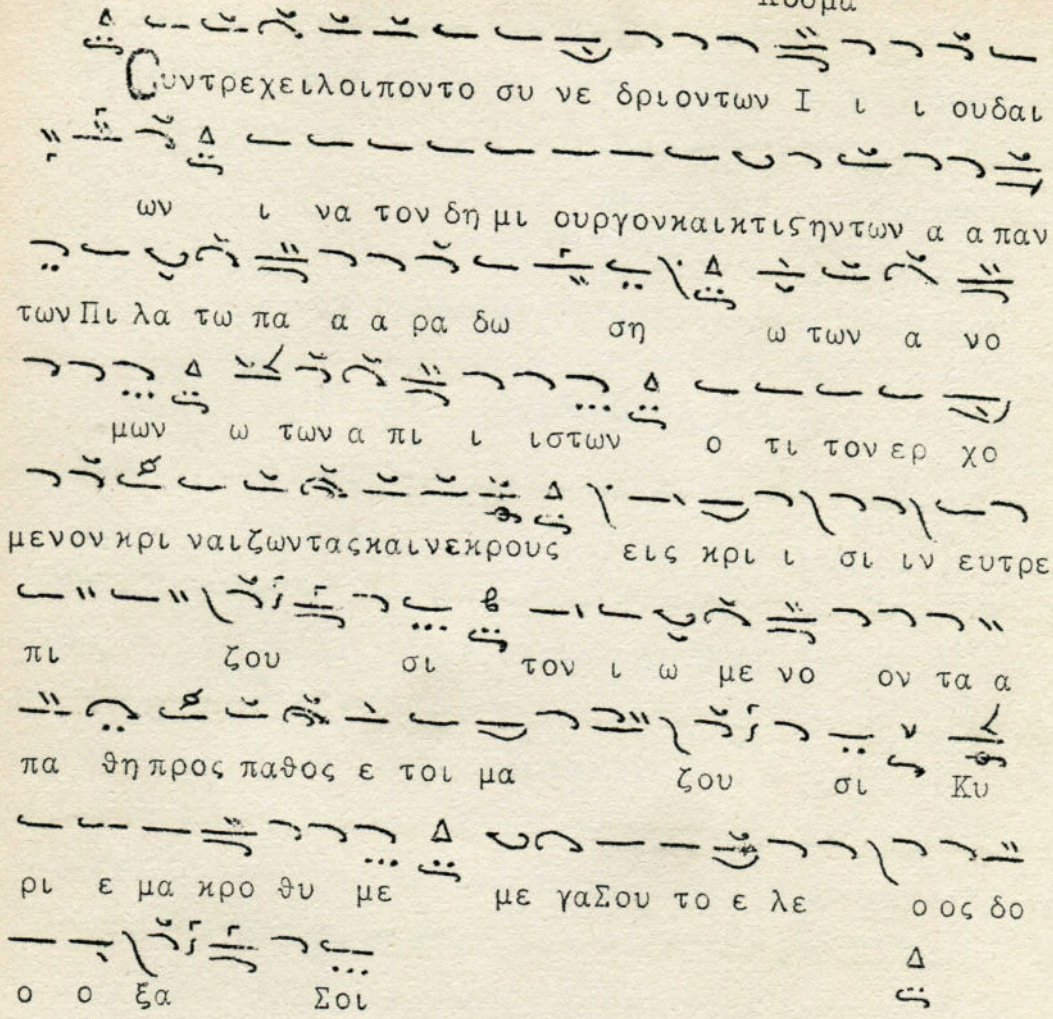 Κοσμα
Συντρεχειλοιποντο συ νε δριοντων Ι ι ι ουδαι
ων ι να τον δη μι ουργονκαικτιςηντων α α παν
των Πι λα τω πα α α ρα δω ση ω των α νο
μων ω των α πι ι ιστων ο τι τον ερ χο
μενον κρι ναιζωνταςκαινεκρους εις κρι ι σι ιν ευτρε
πι ζου σι τον ι ω με νο ον τα α
πα θη προς παθος ε τοι μα ζου σι Κυ
ρι ε μα κρο θυ με με γαΣου το ε λε ο ος δο
ο ο ξα Σοι